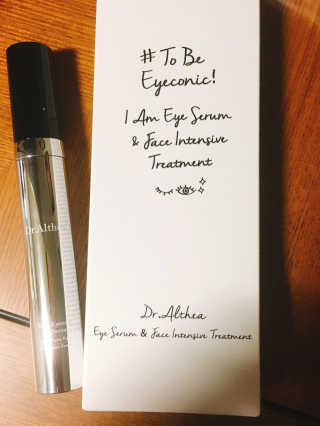 # To Be
Eyeconic!
I Am Eye Serum
& Face Intensive
Treatment
Dr.Althea
Eye Serum & Face Intensive Treatment
Dr.Althe